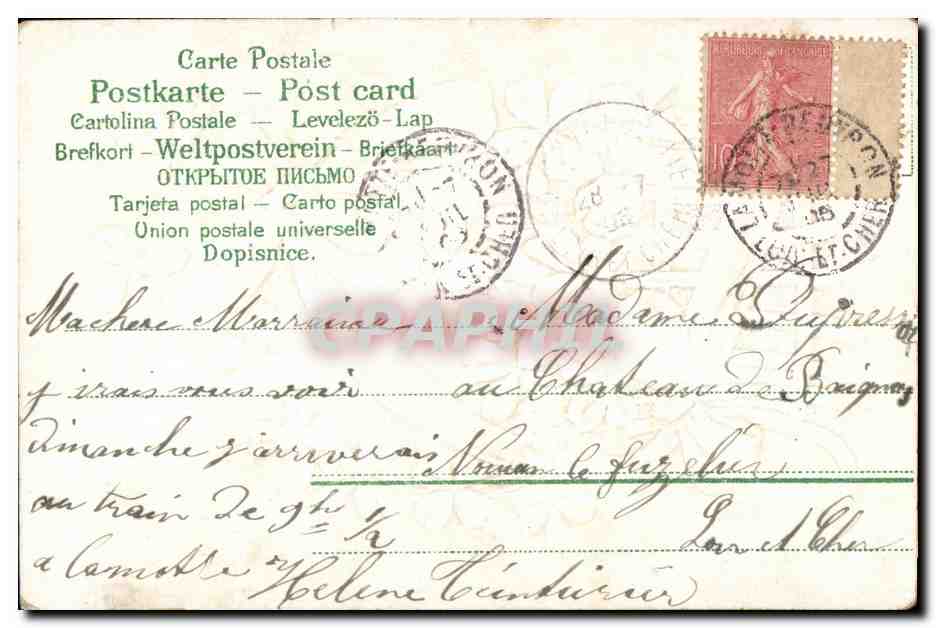 Carte Postale
Postkarte – Post card
Cartolina Postale — Levelező-Lap
Brefkort – Weltpostverein – Briefkaart
ОТКРЫТОЕ ПИСЬМО
Tarjeta postal – Carto postal
Union postale universelle
Dopisnice.
REPUBLIQUE FRANÇAISE
10
LOIR-ET-CHER
28 -7
CPAPHIL
Machere Marraine
j irais vous voir
dimanche j'arriverais
au train de 9h 1/2
a Lamotte
Helene Teinturier
Madame
au Chateau de
Nouan le fuzelier
Loir et Cher